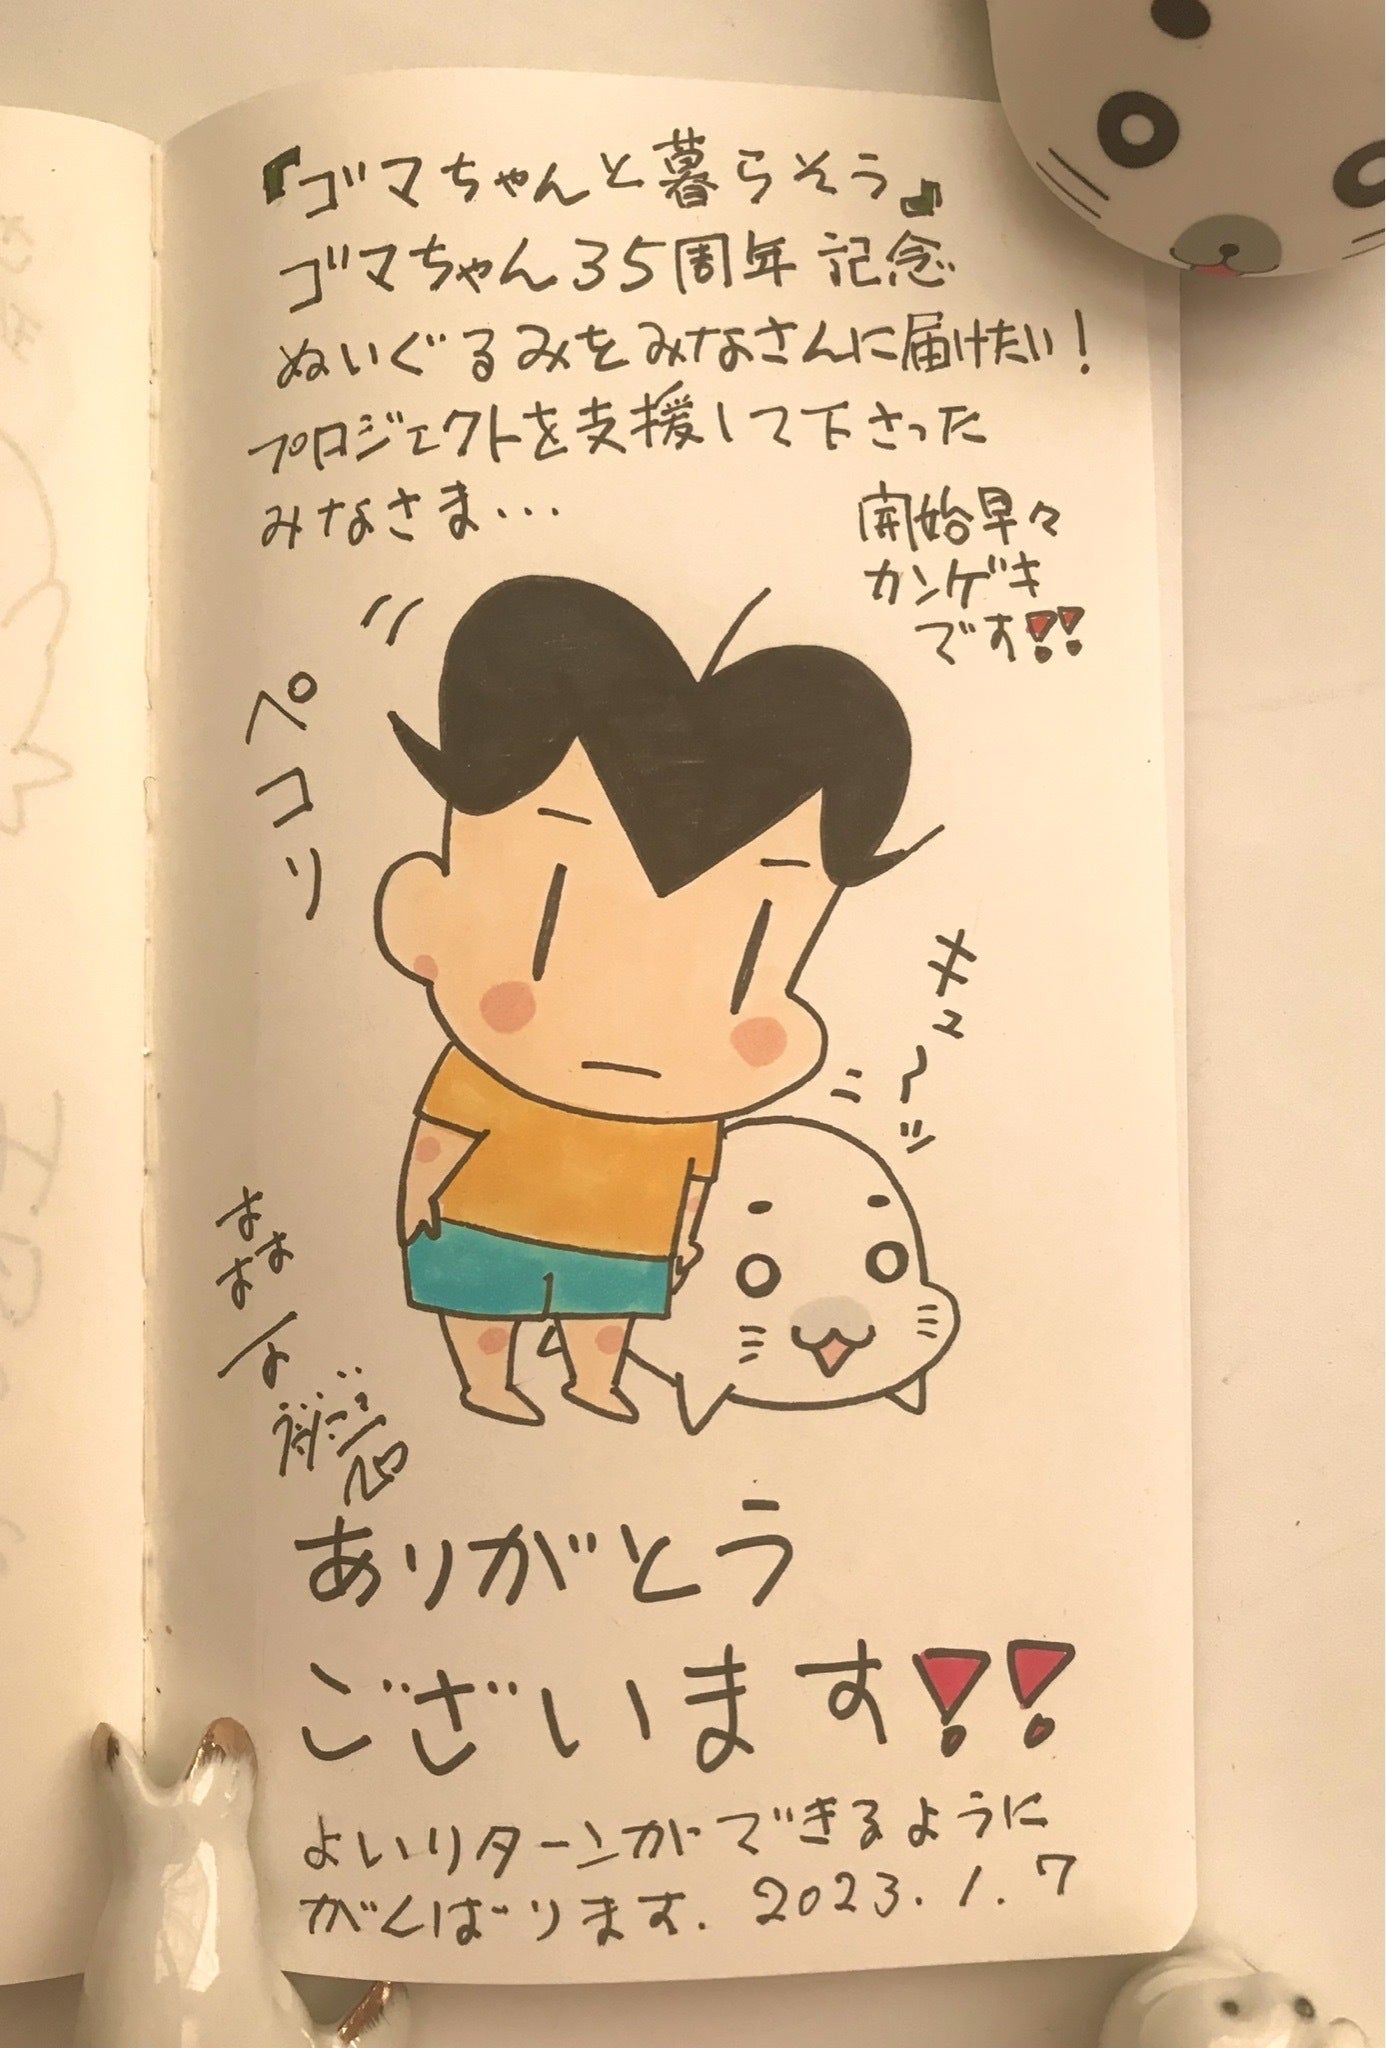 『ゴマちゃんと暮らそう』
ゴマちゃん35周年記念
ぬいぐるみをみなさんに届けたい！
プロジェクトを支援して下さった
みなさま・・・
開始早々
カンゲキ
です!!
ペコリ
キュ〜ッ
ありがとう
ございます!!
よいリターンができるように
がんばります. 2023.1.7